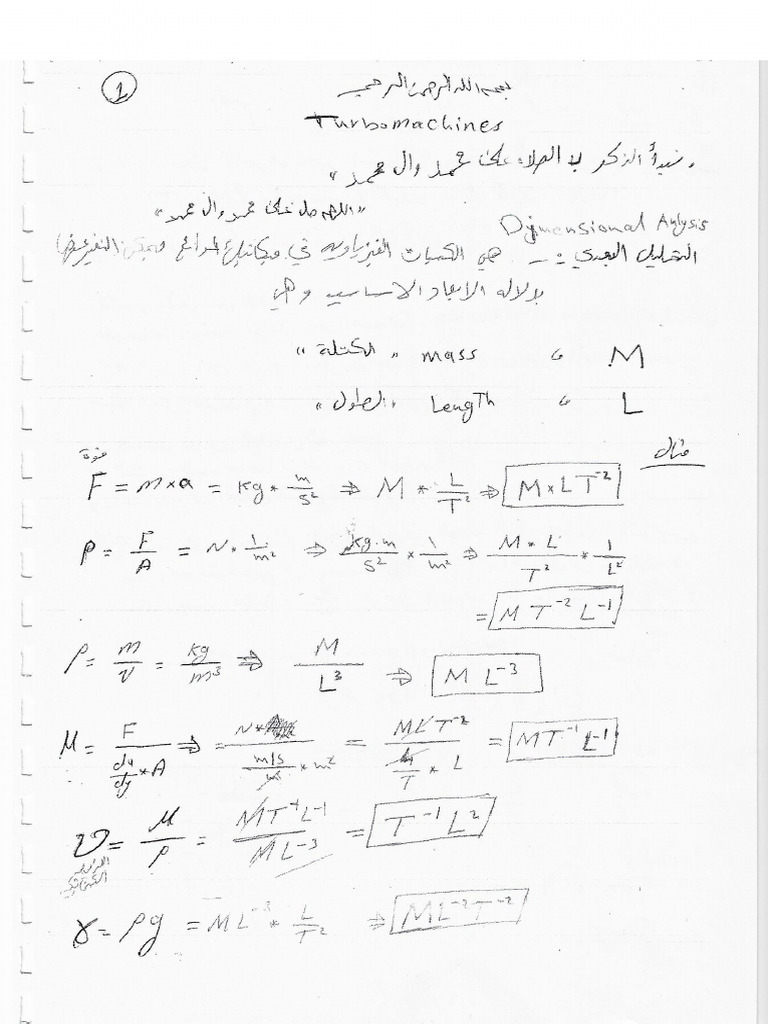 1
بسم الله الرحمن الرحيم
Turbomachines
، نبدأ الذكر بالصلاة على محمد وال محمد "
"اللهم صل على محمد وال محمد"
Dimensional Anlysis
التحليل البعدي :- هي الكميات الفيزياويه في ميكانيك الموائع ويمكن التعبير
بدلاله الابعاد الاساسيه وهي
M ، mass "الكتلة"
L ، Length "الطول"
مثال
قوة
F = m×a = kg * m/s² ⇒ M * L/T² ⇒ M×LT⁻²
P = F/A = N * 1/m² ⇒ kg.m/s² × 1/m² ⇒ M*L/T² * 1/L²
= MT⁻² L⁻¹
ρ = m/v = kg/m³ ⇒ M/L³ ⇒ ML⁻³
μ = F/(du/dy × A) ⇒ = N/((m/s)/m × m²) = MLT⁻²/(L/T * L) = MT⁻¹L⁻¹
υ = μ/ρ = MT⁻¹L⁻¹/ML⁻³ = T⁻¹L²
γ = ρg = ML⁻³ * L/T² ⇒ ML⁻²T⁻²